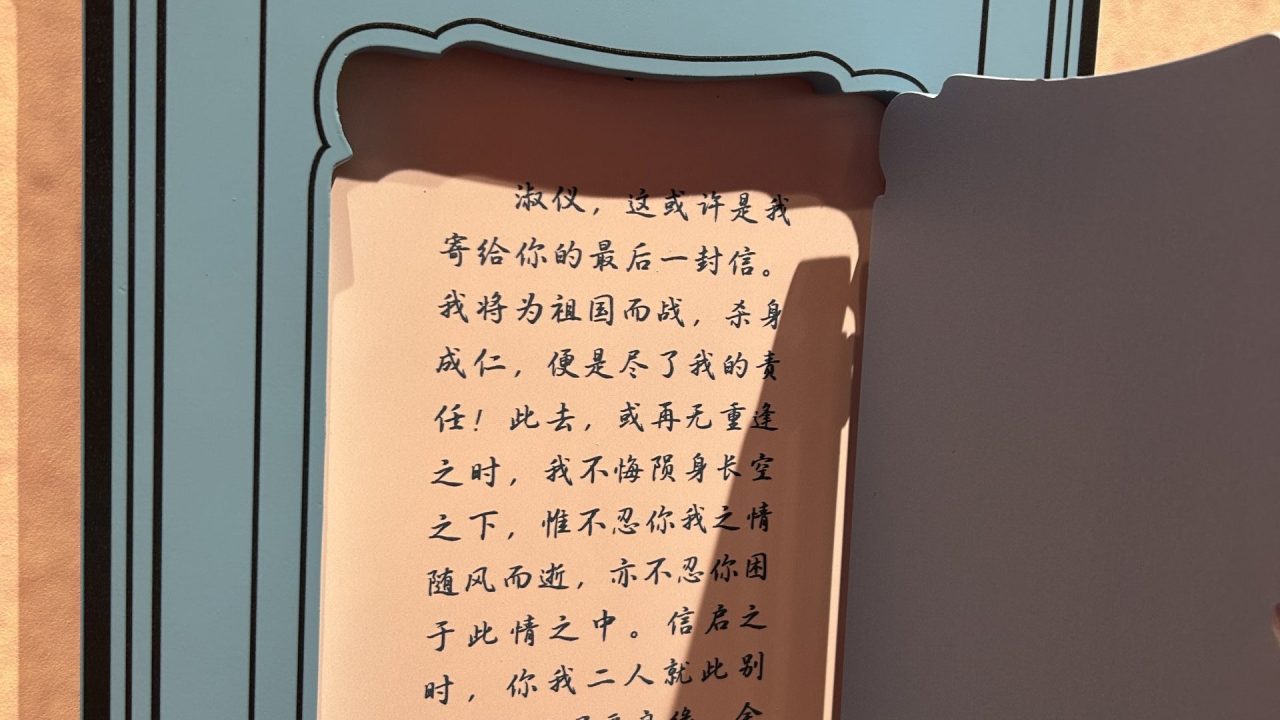 淑仪，这或许是我
寄给你的最后一封信。
我将为祖国而战，杀身
成仁，便是尽了我的责
任！此去，或再无重逢
之时，我不悔陨身长空
之下，惟不忍你我之情
随风而逝，亦不忍你困
于此情之中。信启之
时，你我二人就此别